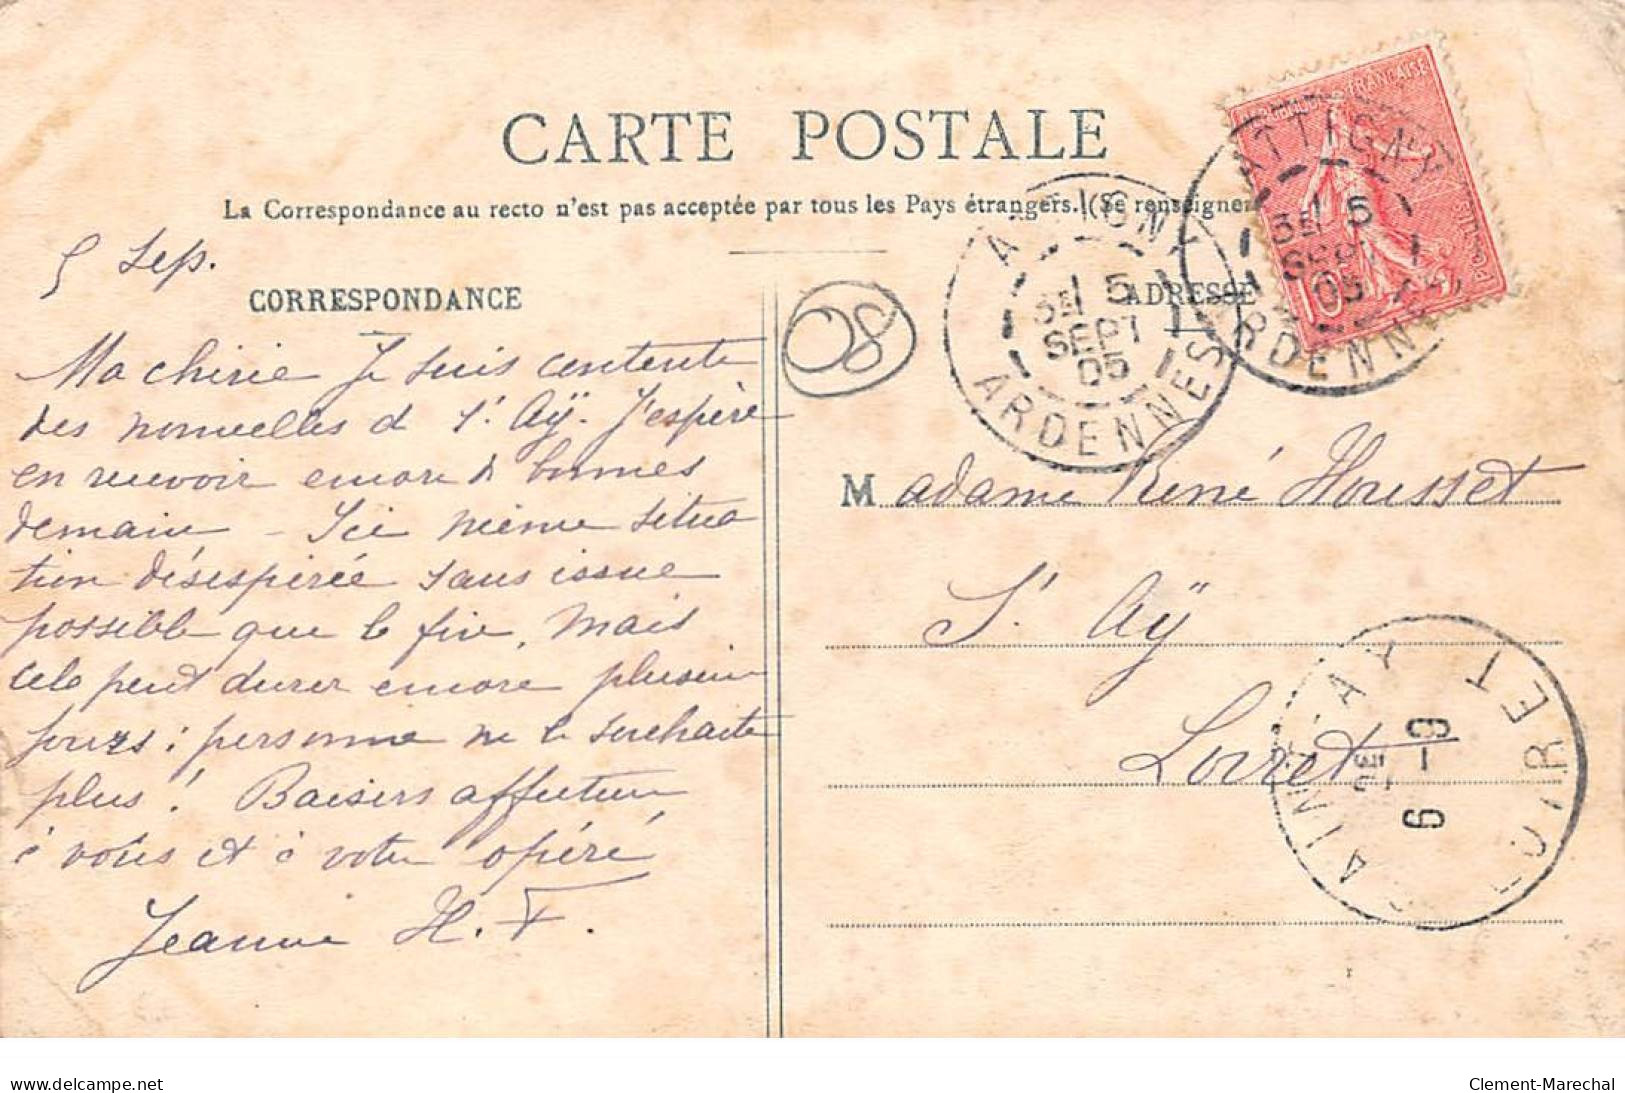 CARTE POSTALE
La Correspondance au recto n'est pas acceptée par tous les Pays étrangers. (Se renseigner
5 Sep.
CORRESPONDANCE
Ma chérie Je suis contente
des nouvelles d St. Aÿ. J'espère
en recevoir encore d bonnes
demain - Ici même situa
tion désespérée sans issue
possible que la fin, mais
cela peut durer encore plusieurs
jours ; personne ne le souhaite
plus ! Baisers affectueux
à vous et à votre opéré
Jeanne H. F.
08
ADRESSE
Madame René Housset
St. Aÿ
Loiret
RÉPUBLIQUE FRANÇAISE
POSTES
10
ATTIGNY
3E
5
SEPT
05
ARDENNES
ATTIGNY
3E
5
SEPT
05
ARDENNES
SAINT-AY
2E
6-9
LOIRET
www.delcampe.net
Clement-Marechal